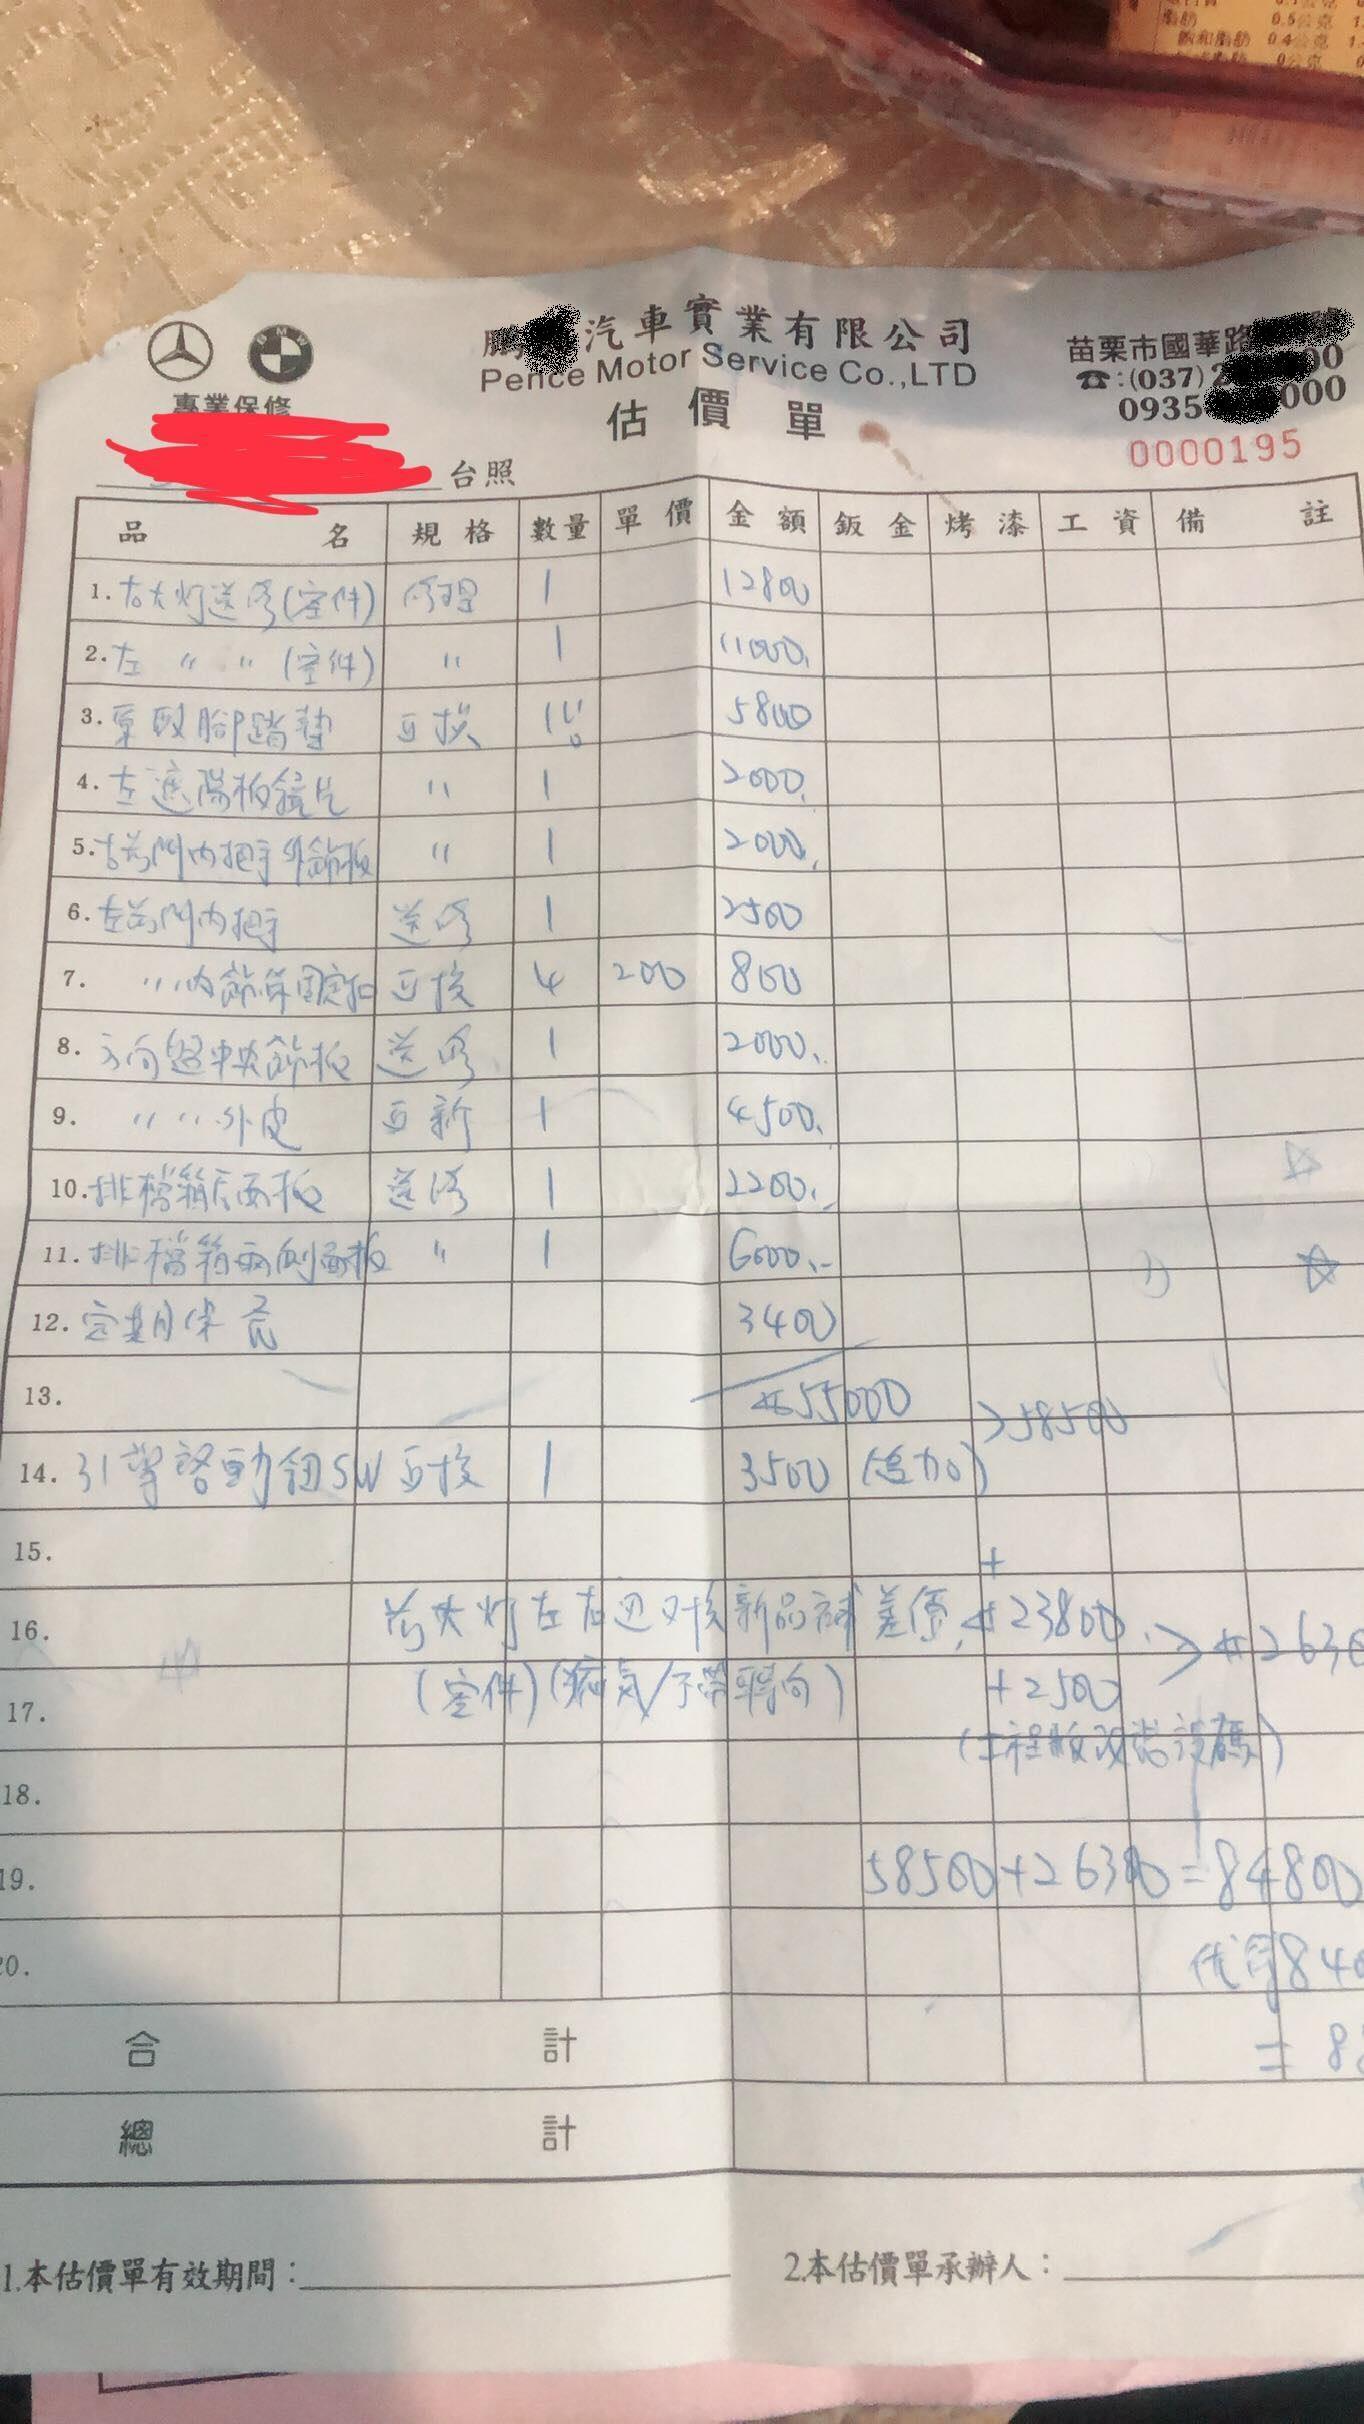 脂肪 0.5公克
飽和脂肪 0.4公克
0公克
鵬 汽車實業有限公司
Pence Motor Service Co.,LTD
估價單
專業保修
苗栗市國華路
☎:(037)2 00
0935 000
0000195
台照
品名 規格 數量 單價 金額 鈑金 烤漆 工資 備註
1. 右大灯送修(客件) 修理 1 12800
2. 左 〃 〃 (客件) 〃 1 11000.
3. 腳踏墊 互換 1 5800
4. 左遮陽板鏡片 〃 1 2000.
5. 右前門內把手外飾板 〃 1 2000.
6. 左前門內把手 送修 1 2500
7. 〃〃內飾板固定扣 互換 4 200 800
8. 方向盤中央飾板 送修 1 2000.
9. 〃 〃 外皮 互新 1 4500.
10. 排檔箱后面板 送修 1 2200.-
11. 排檔箱兩側面板 〃 1 6000.-
12. 定期保養 3400
13. 55000 >58500
14. 引擎啓動鈕SW 互換 1 3500 (追加)
15. +
16. 前大灯左右边互換新品補差價 23800 > 2630
17. (客件) (氙氣/不帶轉向) +2500
(工程版改當設碼)
18.
19. 58500+26300=84800
20. 優待840
合計 = 8
總計
1.本估價單有效期間:
2.本估價單承辦人: